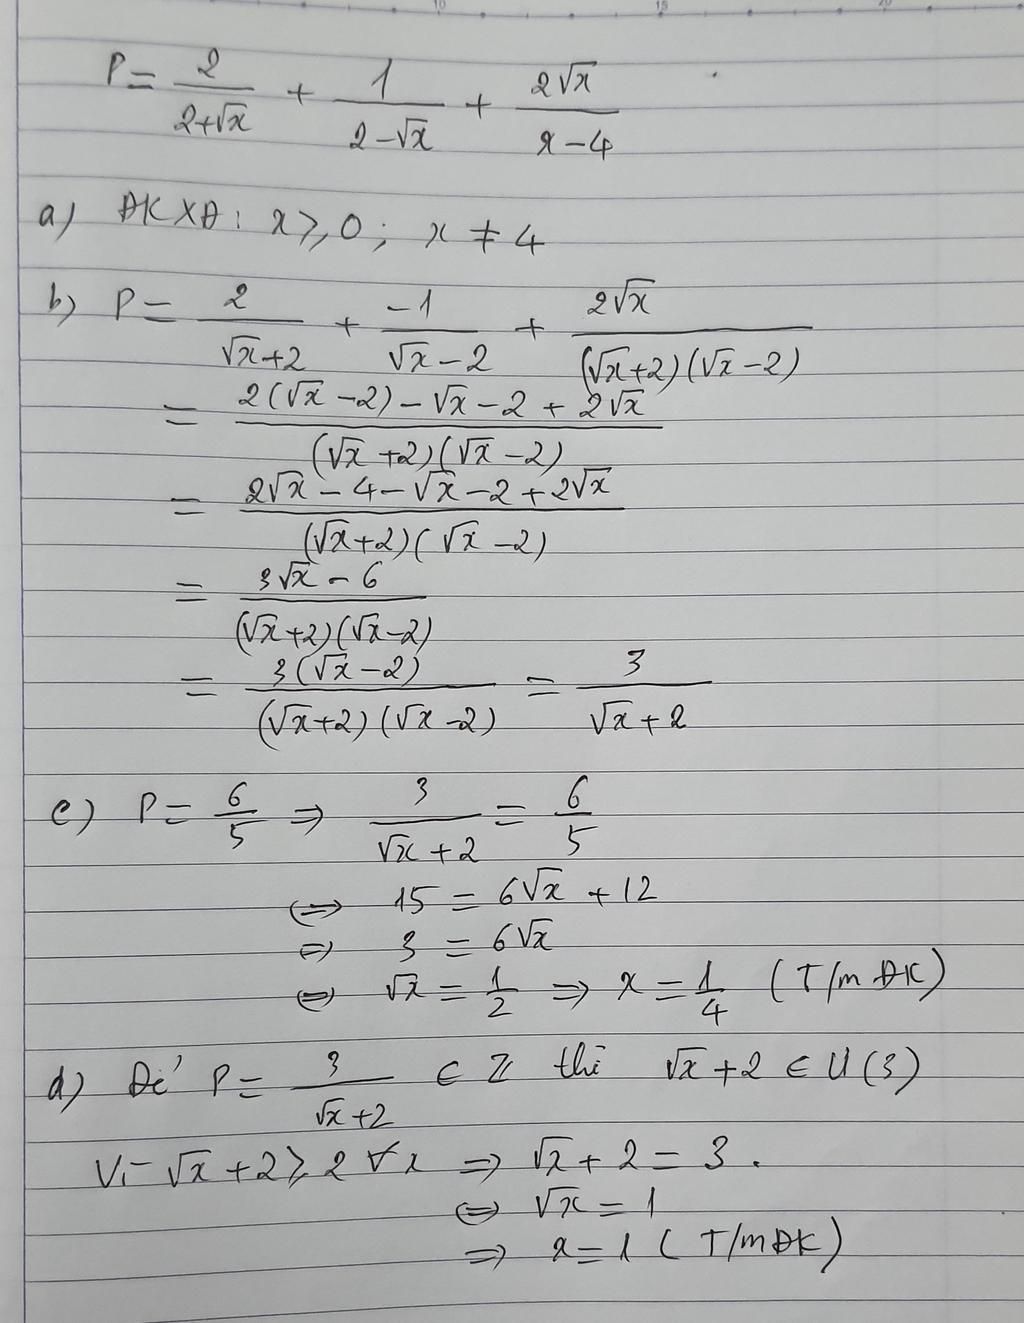 P = 2/(2+√x) + 1/(2-√x) + 2√x/(x-4)
a) ĐKXĐ: x ≥ 0; x ≠ 4
b) P = 2/(√x+2) + -1/(√x-2) + 2√x/((√x+2)(√x-2))
= (2(√x-2) - √x - 2 + 2√x)/((√x+2)(√x-2))
= (2√x - 4 - √x - 2 + 2√x)/((√x+2)(√x-2))
= (3√x - 6)/((√x+2)(√x-2))
= 3(√x-2)/((√x+2)(√x-2)) = 3/(√x+2)
c) P = 6/5 ⇒ 3/(√x+2) = 6/5
⇔ 15 = 6√x + 12
⇔ 3 = 6√x
⇔ √x = 1/2 ⇒ x = 1/4 (T/m ĐK)
d) Để P = 3/(√x+2) ∈ Z thì √x+2 ∈ Ư(3)
Vì √x+2 ≥ 2 ∀x ⇒ √x+2 = 3.
⇔ √x = 1
⇒ x = 1 (T/m ĐK)